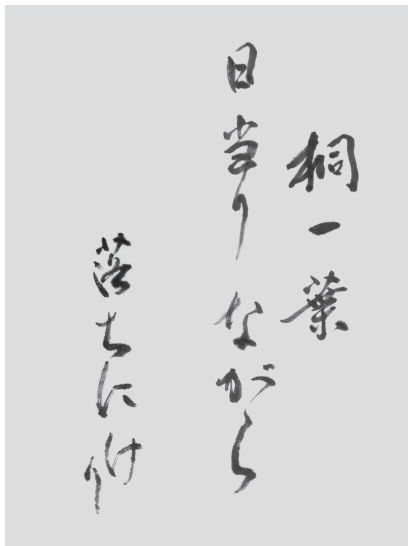 桐一葉
日当りながら
落ちにけり